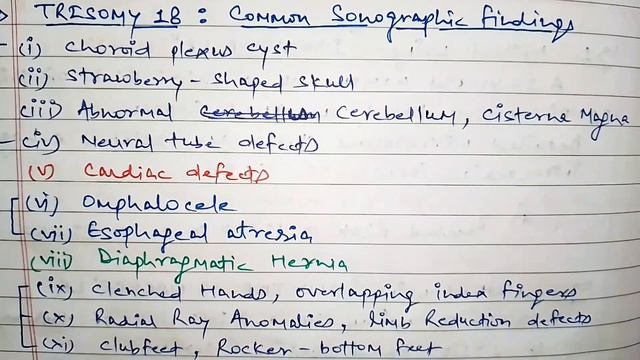 TRISOMY 18 : Common Sonographic findings
(i) choroid plexus cyst
(ii) Strawberry - shaped skull
(iii) Abnormal cerebellum Cerebellum, Cisterna Magna
(iv) Neural tube defects
(v) Cardiac defects
(vi) Omphalocele
(vii) Esophageal atresia
(viii) Diaphragmatic Hernia
(ix) clenched Hands, overlapping index fingers
(x) Radial Ray Anomalies, limb Reduction defects
(xi) clubfeet, Rocker - bottom feet